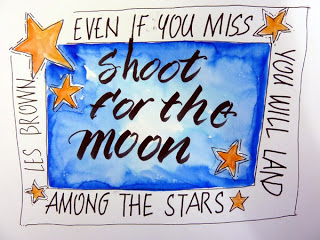 shoot
for the
moon
EVEN IF YOU MISS
YOU WILL LAND
AMONG THE STARS
LES BROWN